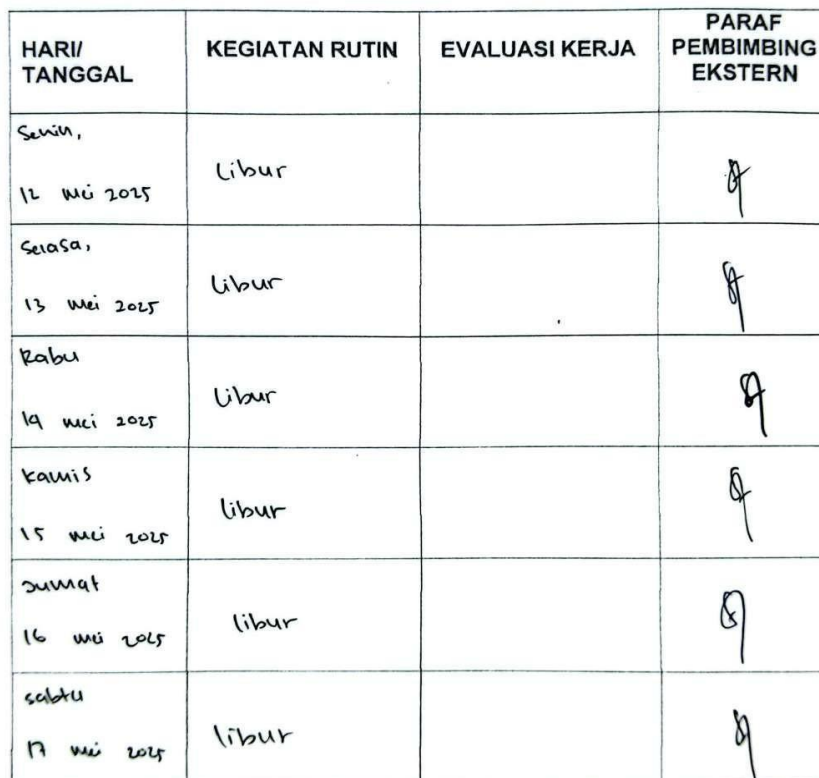 HARI/ TANGGAL
KEGIATAN RUTIN
EVALUASI KERJA
PARAF PEMBIMBING EKSTERN
Senin,
12 mei 2025
Libur
Selasa,
13 mei 2025
Libur
Rabu
14 mei 2025
Libur
Kamis
15 mei 2025
libur
Jumat
16 mei 2025
libur
sabtu
17 mei 2025
libur